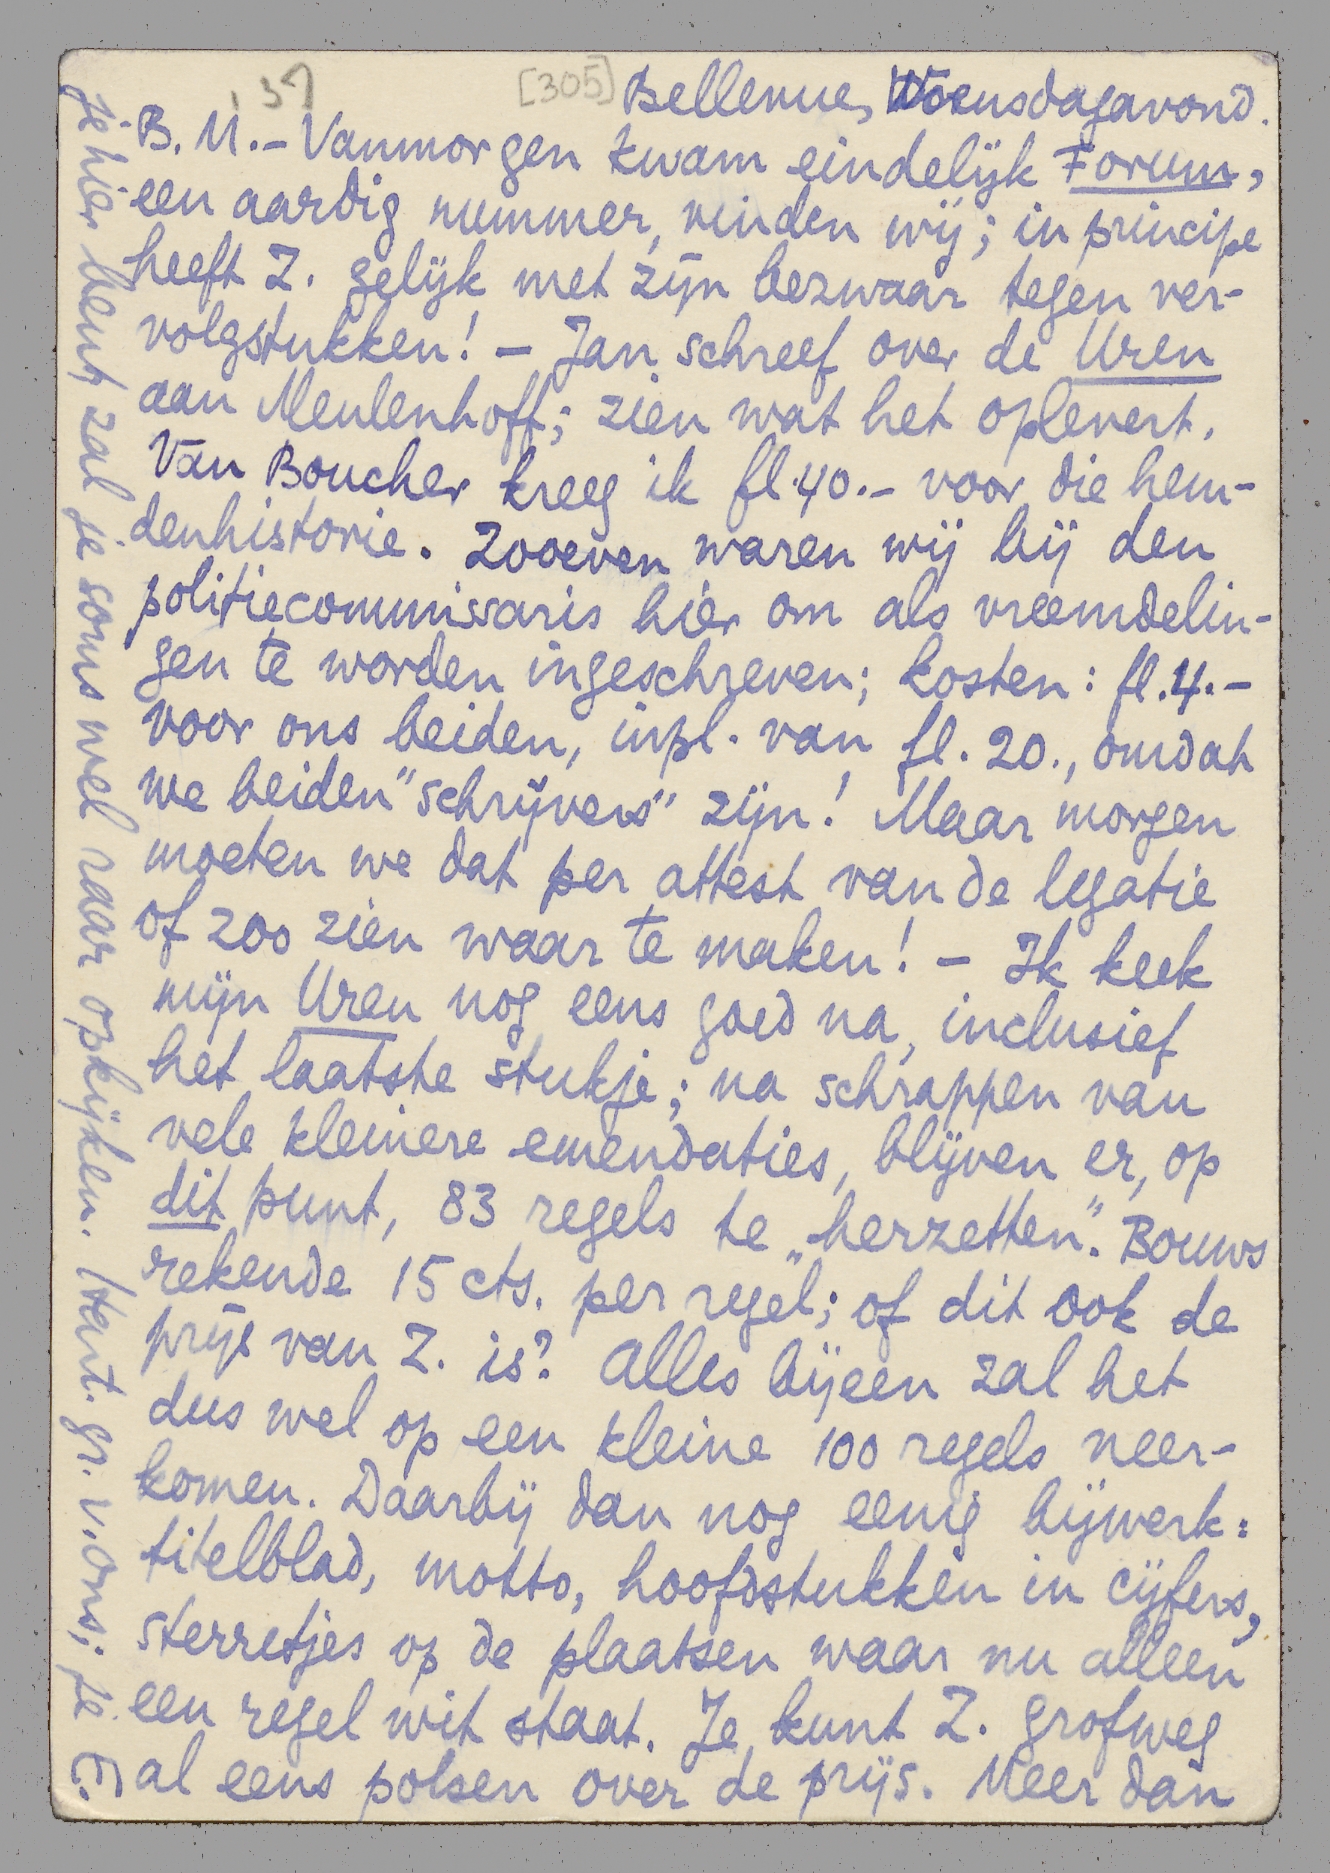 [305] Bellevue, Woensdagavond.
B. M. — Vanmorgen kwam eindelijk Forum,
een aardig nummer, vinden wij; in principe
heeft Z. gelijk met zijn bezwaar tegen ver-
volgstukken! — Jan schreef over de Uren
aan Meulenhoff; zien wat het oplevert.
Van Boucher kreeg ik fl. 40.— voor die hem-
denhistorie. Zooeven waren wij bij den
politiecommissaris hier om als vreemdelin-
gen te worden ingeschreven; kosten: fl. 4.—
voor ons beiden, inpl. van fl. 20., omdat
we beiden "schrijvers" zijn! Maar morgen
moeten we dat per attest van de legatie
of zoo zien waar te maken! — Ik keek
mijn Uren nog eens goed na, inclusief
het laatste stukje; na schrappen van
vele kleinere emendaties, blijven er, op
dit punt, 83 regels te „herzetten". Bouws
rekende 15 cts. per regel; of dit ook de
prijs van Z. is? Alles bijeen zal het
dus wel op een kleine 100 regels neer-
komen. Daarbij dan nog eenig bijwerk:
titelblad, motto, hoofdstukken in cijfers,
sterretjes op de plaatsen waar nu alleen
een regel wit staat. Je kunt Z. grofweg
al eens polsen over de prijs. Meer dan
je hier bent, zal je soms wel raar opkijken. Hart. gr. v. ons; je E.